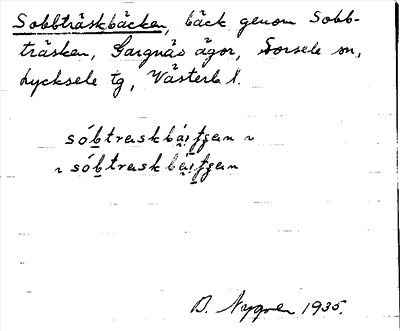 Sobbträskbäcken, bäck genom Sobb-
träsken, Gargnäs ägor, Sorsele sn,
Lycksele tg, Västerb l.
sóbtraskbäi̯fgan ~
~ sóbtraskbäi̯fgan
D. Nygren 1935.